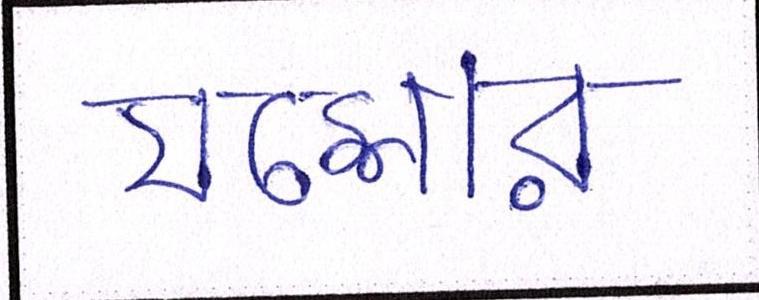 যশোর